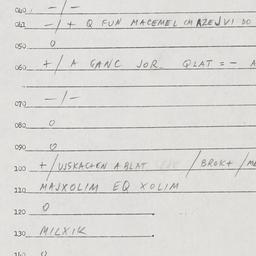 040 -/-
041 -/+ Q FUN MACEMEL CM AZEJVI DO
050 0
060 +/A GANC JOR QLAT = - A
070 -/-
080 0
090 0
100 +/VJSKACHEN ABLAT /BROK+/ME
110 MAJXOLIM EQ XOLIM
120 0
130 MILXIK
140 0